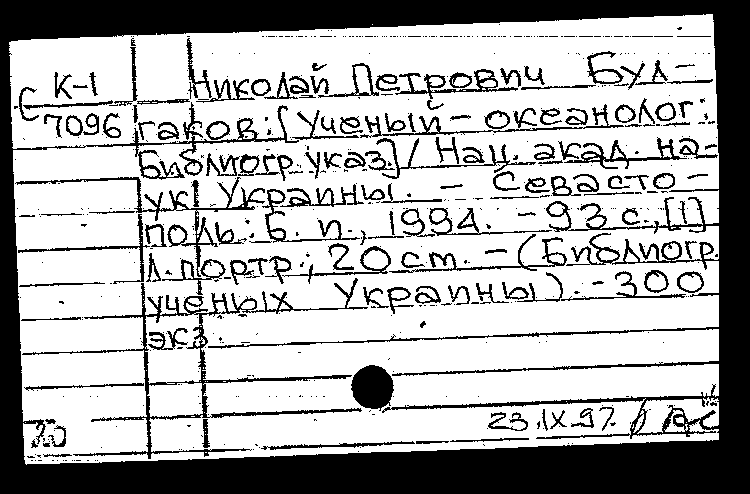 К-1 Николай Петрович Бул-
С 7096 гаков: [Ученый - океанолог:
Библиогр. указ.] / Нац. акад. на-
ук Украины. - Севасто-
поль: Б. и., 1994. - 93 с., [1]
л. портр.; 20 cm. - (Библиогр.
ученых Украины). - 300
экз.
23.IX.97.